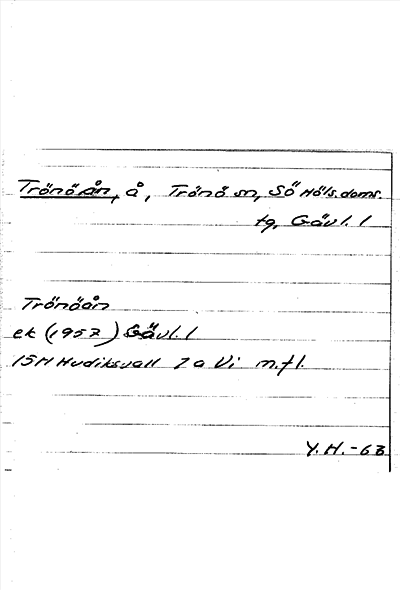 Trönöån, å, Trönö sn, Sö Häls. doms.
tg, Gävl. l
Trönöån
ek (1957) Gävl. l
15H Hudiksvall 7 a Vi m.fl.
Y. H. -63